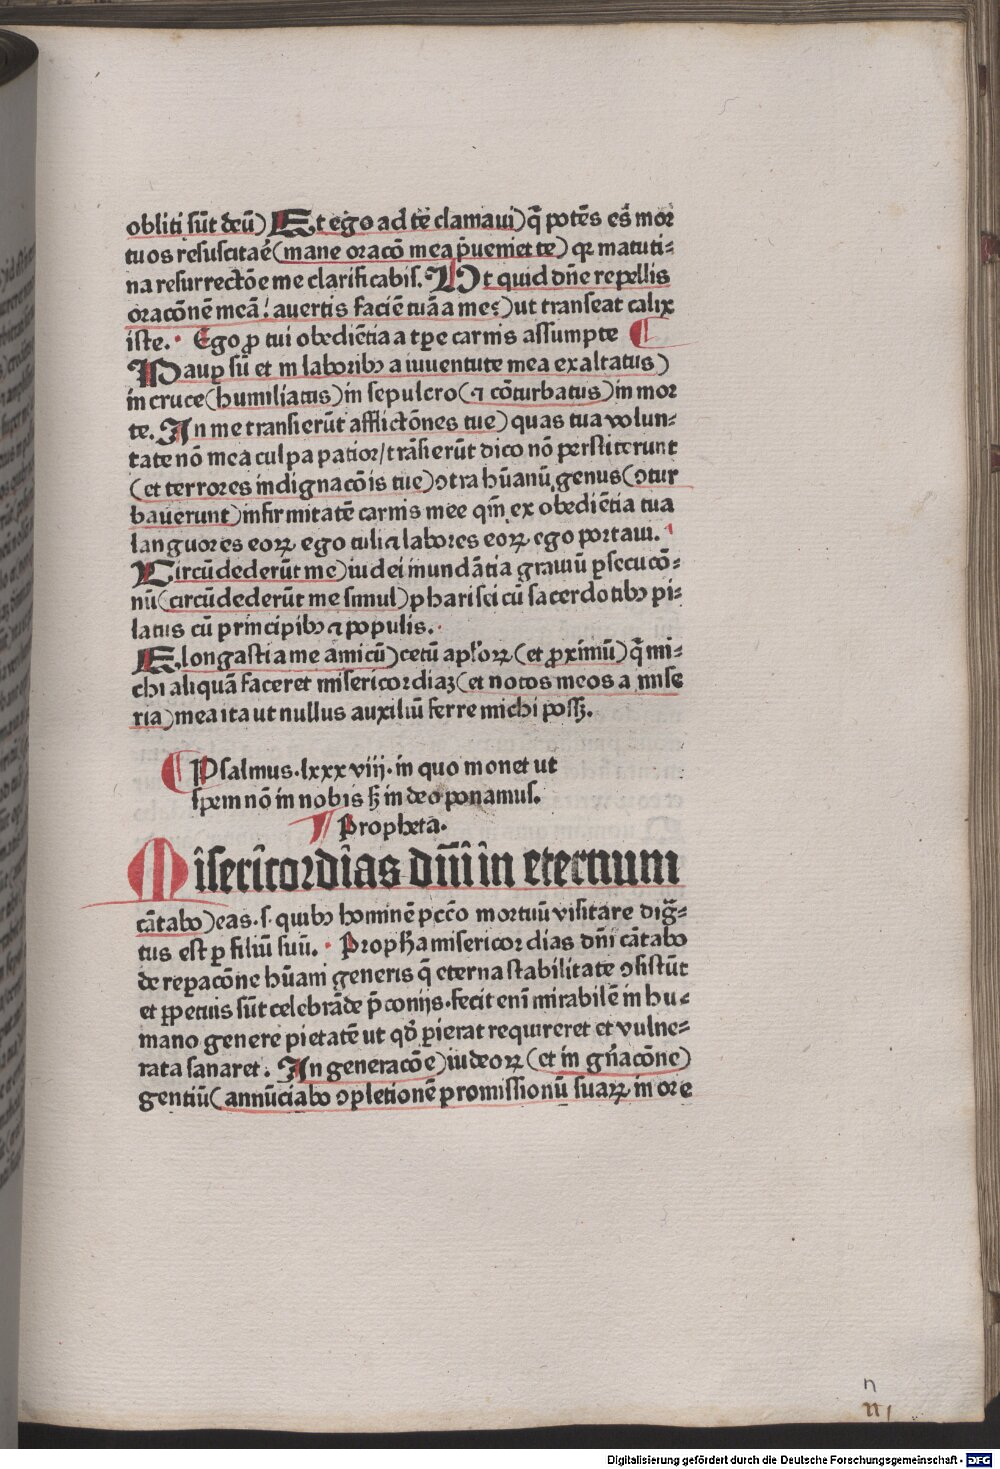 obliti sūt deū) Et ego ad te clamaui) q̄ potēs es mor
tuos resuscitaē (mane oracō mea p̄ueniet te) qr matuti⸗
na resurrectōe me clarificabis. Ut quid dn̄e repellis
oracōnē meā! auertis faciē tuā a me?) ut transeat calix
iste. Ego ꝓ tui obediētia a tꝑe carnis assumpte
Pauꝑ sū et in laboribꝫ a iuuentute mea exaltatus)
in cruce (humiliatus) in sepulcro (⁊ cōturbatus) in mor
te. In me transierūt afflictōnes tue) quas tua volun⸗
tate nō mea culpa patior/ trāsierūt dico nō perstiterunt
(et terrores indignacōis tue) ɔtra hūanū genus (ɔtur
bauerunt) infirmitatē carnis mee qm̄ ex obediētia tua
languores eoꝝ ego tuli ⁊ labores eoꝝ ego portaui.
Circūdederūt me) iudei inundātia grauiū ꝑsecucō⸗
nū (circūdederūt me simul) pharisei cū sacerdotibꝫ pi⸗
latus cū principibꝫ ⁊ populis.
Elongasti a me amicū) cetū apl'oꝝ (et ꝓximū) q̄ mi⸗
chi aliquā faceret misericordiaꝫ (et notos meos a mise
ria) mea ita ut nullus auxiliū ferre michi possꝫ.
Psalmus. lxxxviij. in quo monet ut
spem nō in nobis sꝫ in deo ponamus.
Propheta.
Misericordias dn̄i in eternum
cātabo) eas. s. quibꝫ hominē pccō mortuū visitare diḡ⸗
tus est ꝑ filiū suū. Propħa misericordias dn̄i cātabo
de reꝑacōne hūani generis q̄ eterna stabilitate ɔsistūt
et ꝑpetuis sūt celebrāde p̄conijs. fecit eni mirabilē in hu⸗
mano genere pietatē ut qd̓ ꝑierat requireret et vulne⸗
rata sanaret. In generacōe) iudeoꝝ (et in gn̄acōne)
gentiū (annūciabo ɔpletionē promissionū suaꝝ in ore
n
n j
Digitalisierung gefördert durch die Deutsche Forschungsgemeinschaft - DFG